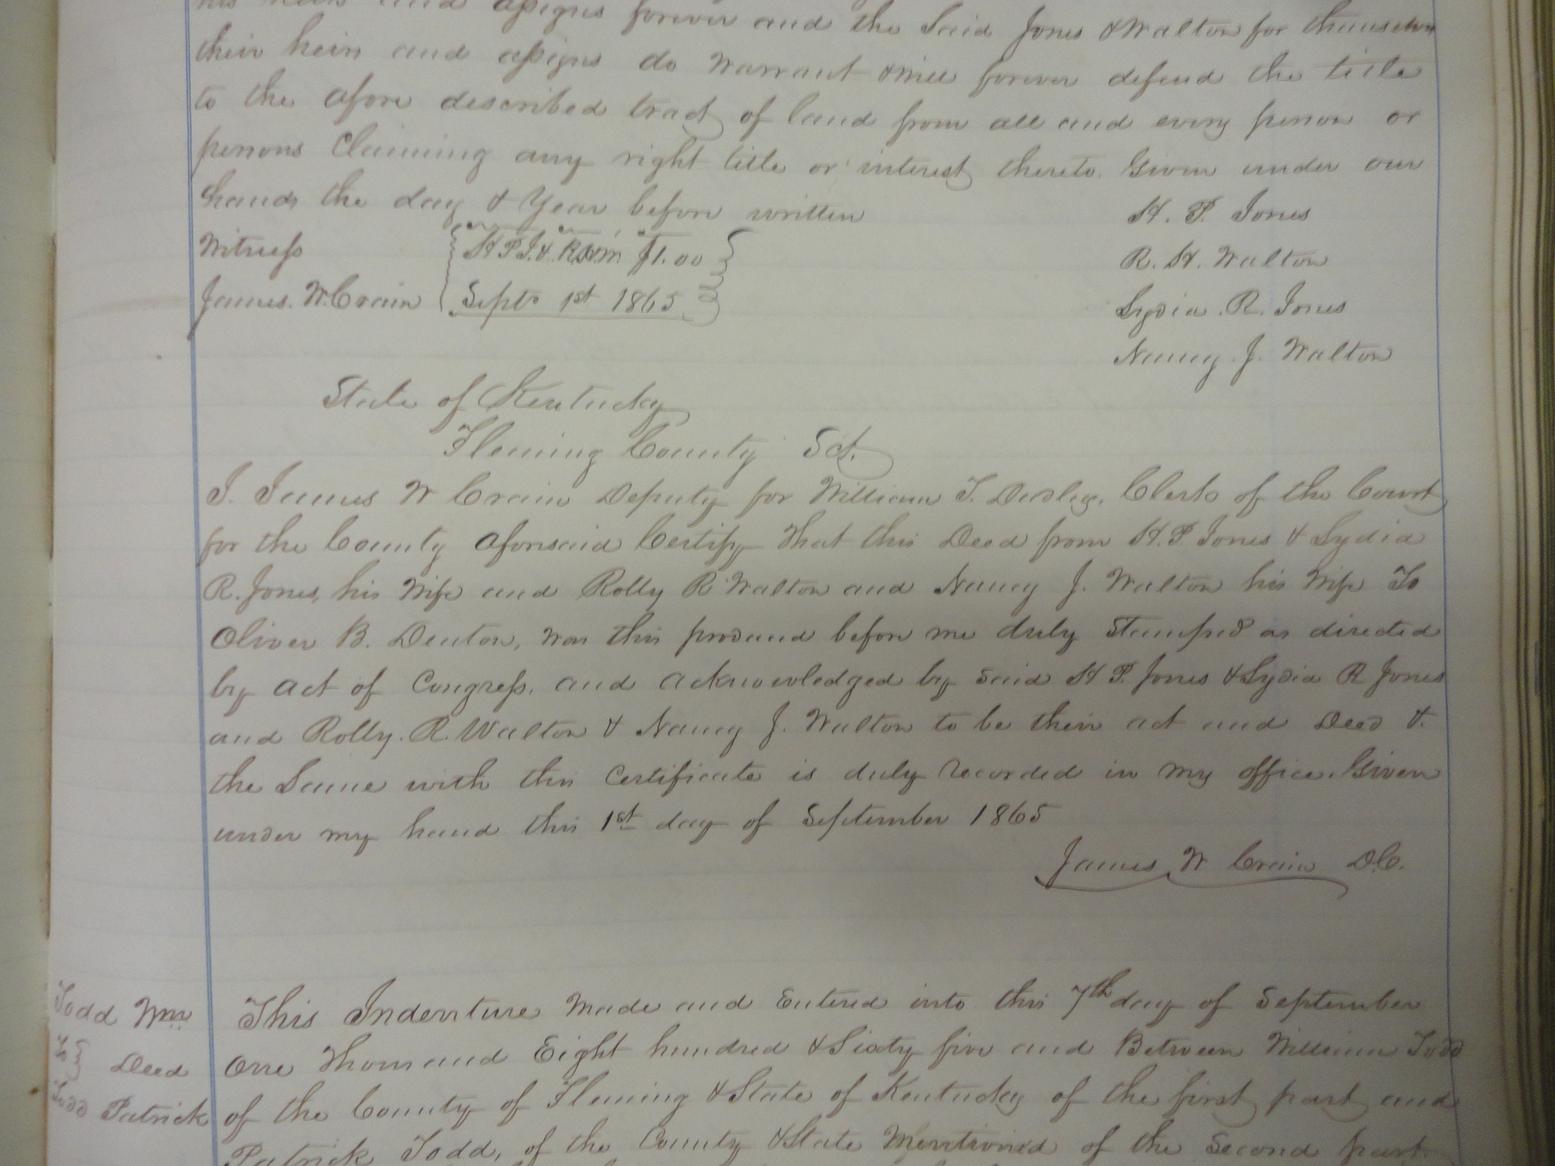 his heirs and assigns forever and the Said Jones & Walton for themselves
their heirs and assigns do Warrant & Will forever defend the title
to the afore described tract of land from all and every person or
persons Claiming any right title or interest thereto. Given under our
hands the day & Year before written
H. P. Jones
Witness
H P J & R W $1.00
R. H. Walton
James. W. Crain
Septr 1st 1865
Lydia. R. Jones
Nancy. J. Walton
State of Kentucky
Fleming County Sct.
I. James W Crain Deputy for William T. Dudley, Clerk of the Court
for the County aforesaid Certify that this Deed from H. P. Jones & Lydia
R. Jones, his Wife and Rolly R Walton and Nancy J. Walton his Wife To
Oliver B. Denton, was this produced before me duly Stamped as directed
by act of Congress, and acknowledged by Said H P. Jones & Lydia R Jones
and Rolly. R. Walton & Nancy J. Walton to be their act and Deed &
the Same with this Certificate is duly recorded in my office. Given
under my hand this 1st day of September 1865
James W Crain D.C.
Todd Wm
This Indenture Made and Entered into this 7th day of September
To Deed
One Thousand Eight hundred & Sixty five and Between William Todd
Todd Patrick
of the County of Fleming & State of Kentucky of the first part and
Patrick Todd, of the County & State Mentioned of the Second part